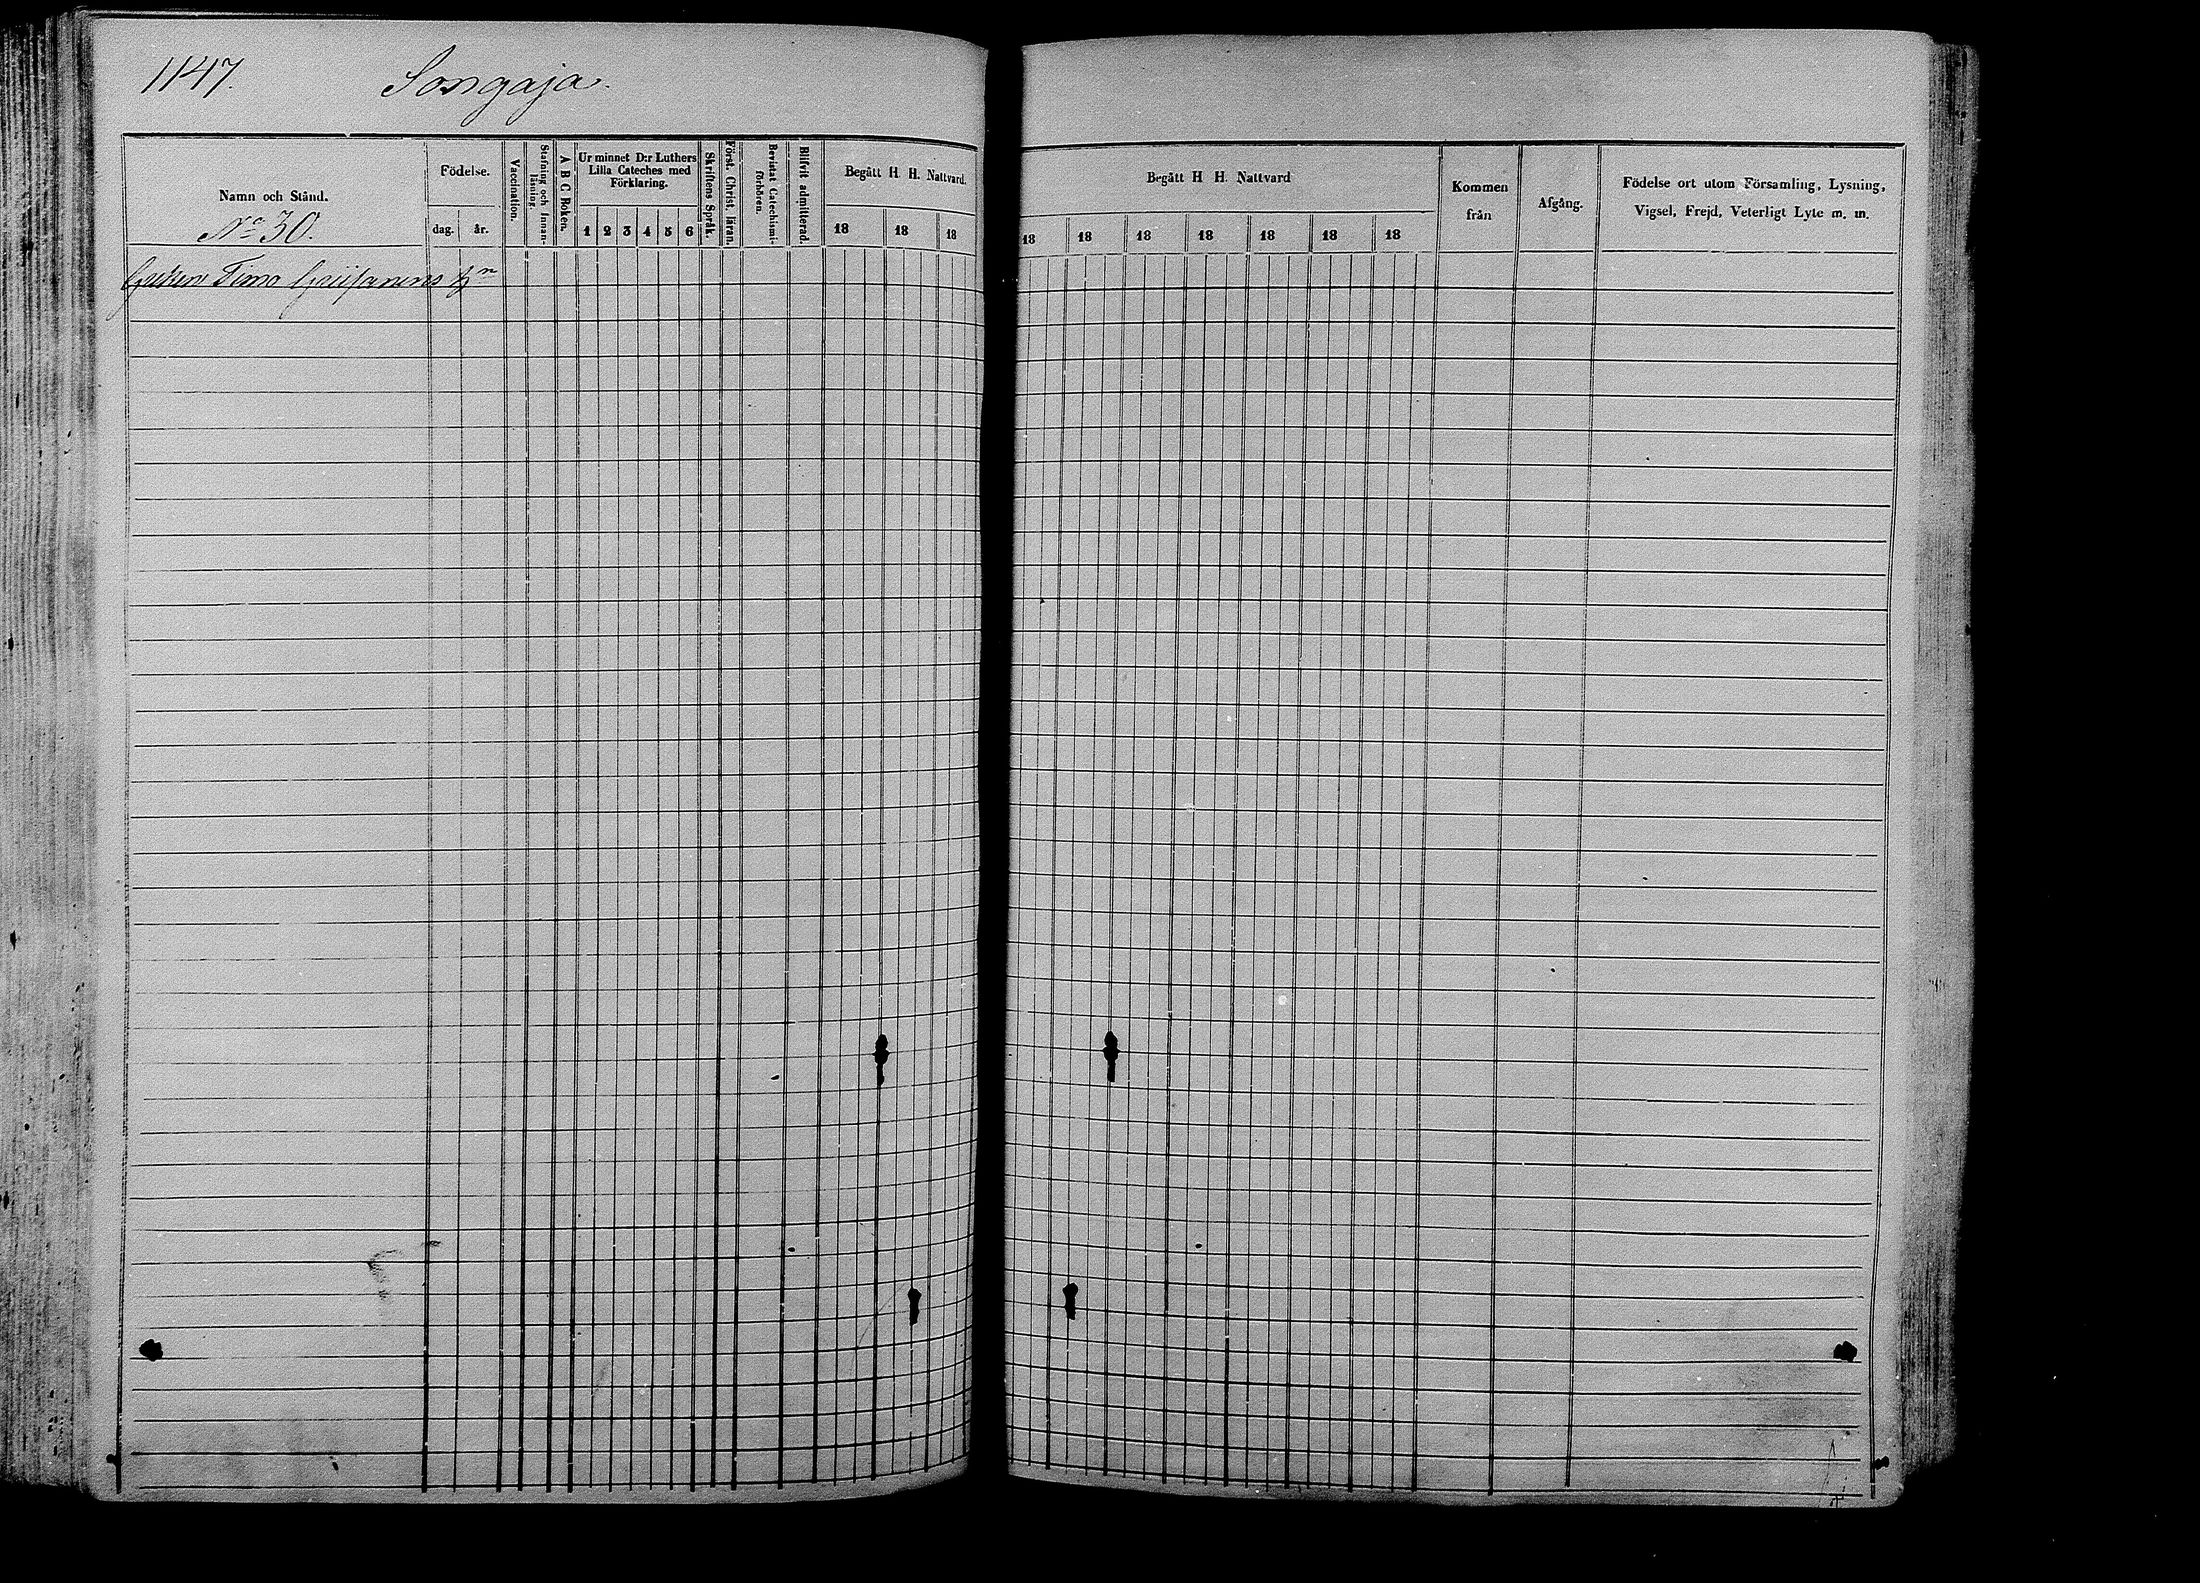 1147. Songaja.
Namn och Stånd.
No 30.
Födelse.
dag. år.
Vaccination.
Stafning och Innanläsning.
A B C Boken.
Ur minnet D:r Luthers
Lilla Cateches med
Förklaring.
1 2 3 4 5 6
Skriftens Språk.
Först. Christ. läran.
Bevistat Catechismiförhören.
Blifvit admitterad.
Begått H. H. Nattvard.
18 18 18
Begått H H. Nattvard
18 18 18 18 18 18 18
Kommen
från
Afgång.
Födelse ort utom Församling, Lysning,
Vigsel, Frejd, Veterligt Lyte m. m.
Timo